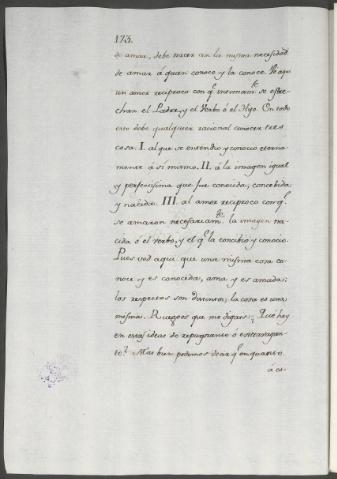 173.
de amar, debe nacer en la misma necesidad
de amar á quien conoce y la conoce. Ve aqui
un amor reciproco con q.e inmensam.te se estre-
chan el Padre, y el Verbo ó el Hijo. En todo
esto debe qualquier racional conocer tres
cosas. I. al que se entendio y conocio eterna-
mente á sí mismo. II. á la imagen igual
y perfectisima que fue conocida, concebida
y nacida. III. al amor reciproco con q.e
se amaron necesariam.te la imagen na-
cida ó el verbo, y el q.e la concibio y conocio.
Pues ved aqui que una misma cosa co-
noce y es conocida, ama y es amada;
los respectos son diversos, la cosa es una
misma. Ruegoos que me digais: Qué hay
en estas ideas de repugnante ó extravagan-
te? Mas bien podemos decir q.e en quanto
á es-